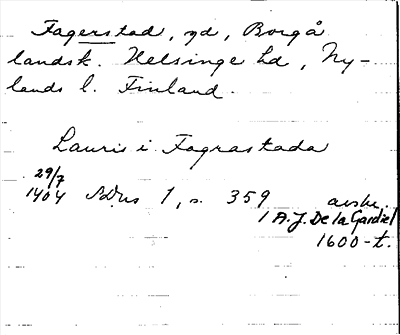 Fagerstad, gd, Borgå
landsk. Helsinge hd, Ny-
lands l. Finland.
Lauris i Fagrastada
29/7
1404 SDns 1, s. 359 avskr.
/A.J. De la Gardie/
1600-t.